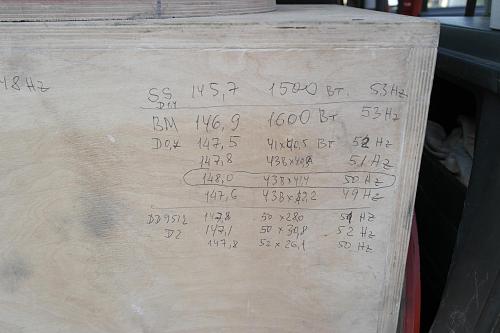 48Hz
SS 145,7 1500 Вт. 53Hz
D1,1
BM 146,9 1600 Вт 53Hz
D0,4 147,5 41x40,5 Вт 52Hz
147,8 43Bx40,8 51Hz
148,0 43Bx41,4 50Hz
147,6 43Bx42,2 49Hz
DD9512 147,8 50x28,0 51Hz
D2 147,1 50x30,8 52Hz
147,8 52x26,1 50Hz